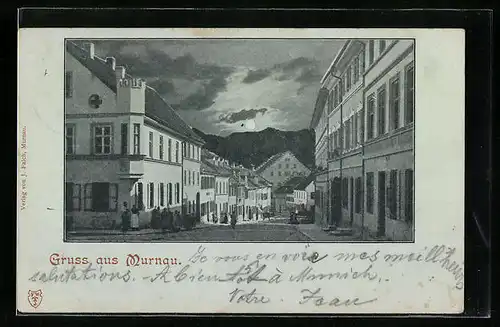 Verlag von J. Falch, Murnau.
Gruss aus Murnau.
Je vous en voie mes meilleures
salutations. A bientôt à Munich,
Votre Jean